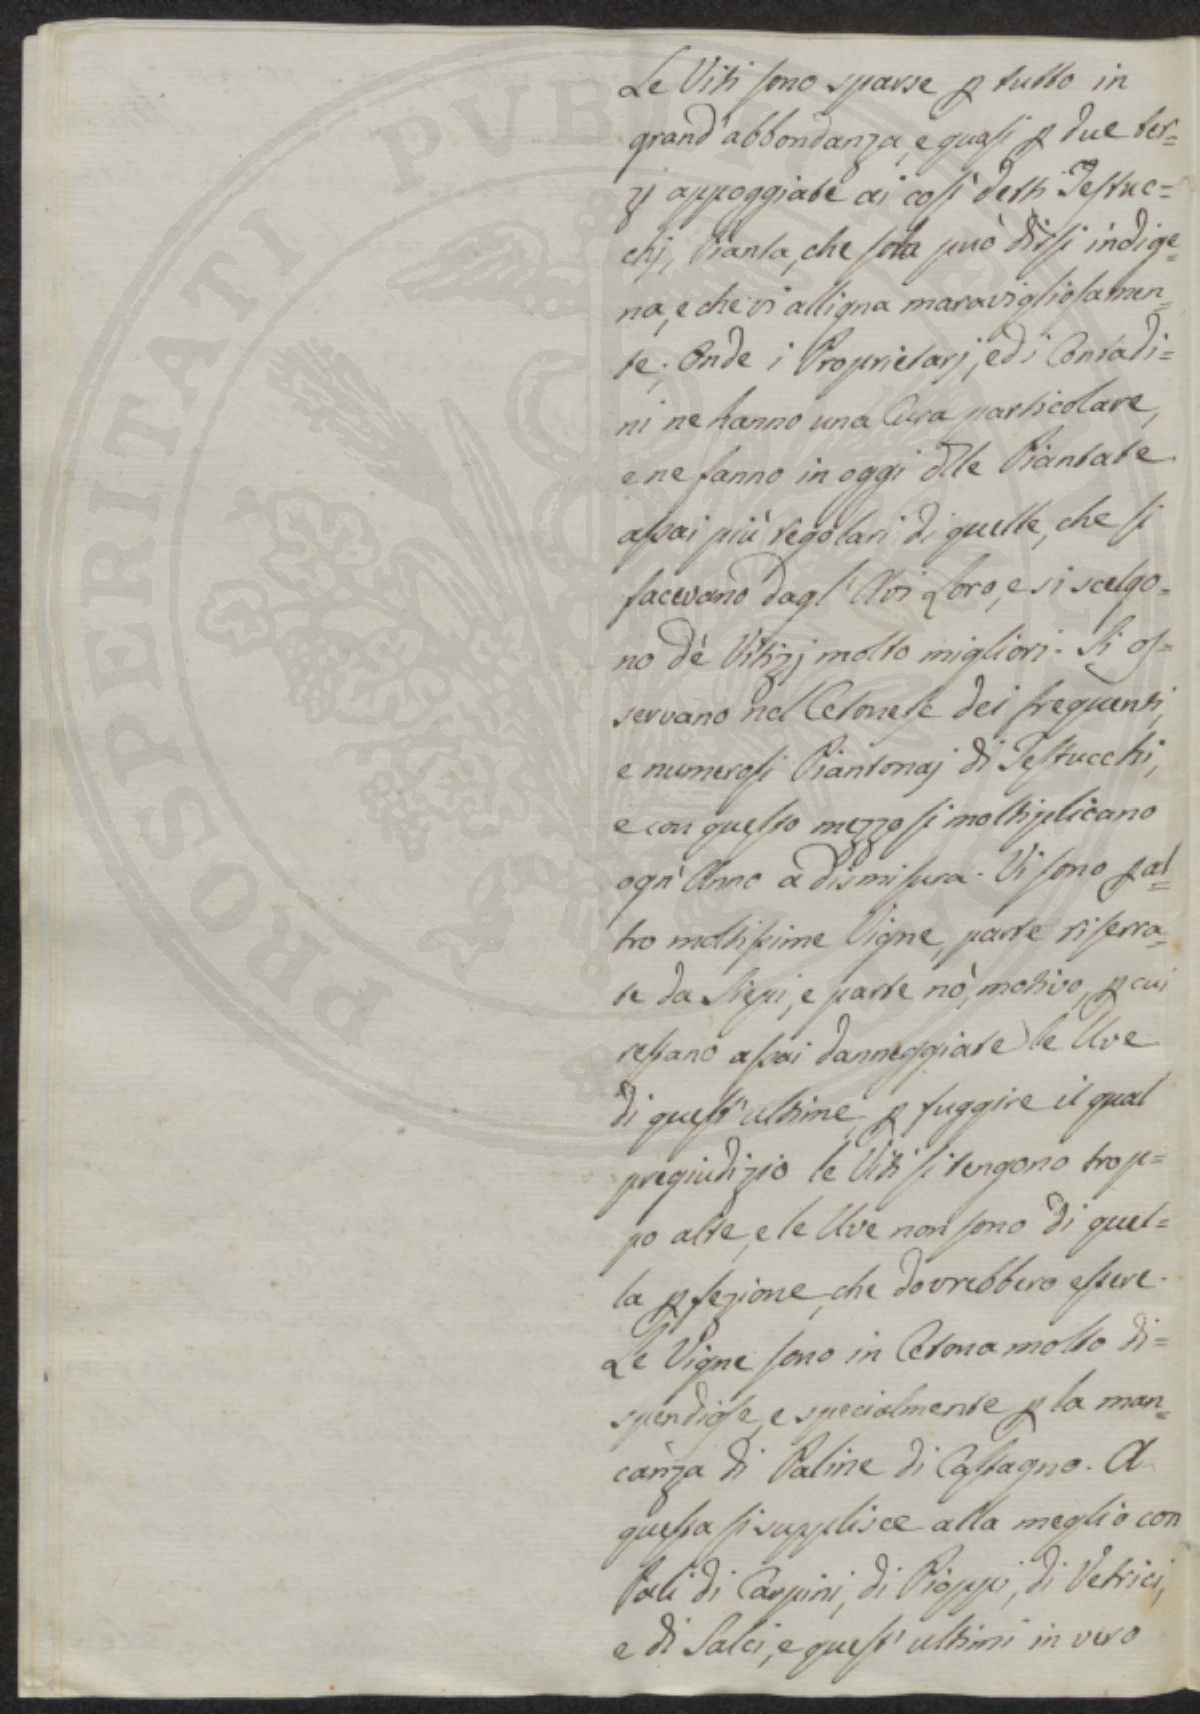 Le Viti sono sparse ꝑ tutto in
grand'abbondanza, e quasi ꝑ due ter=
zj appoggiate ai così detti Testuc=
chj, Pianta, che sola può dirsi indige=
na, e che vi alligna maravigliosamen=
te; Onde i Proprietarj, ed i Contadi=
ni ne hanno una Cura particolare,
e ne fanno in oggi dlle Piantate
assai più regolari di quelle, che si
facevano dagl'Avi Loro, e si scelgo=
no dè Vitizj molto migliori. Si os=
servano nel Cetonese dei frequenti,
e numerosi Piantonaj di Testucchi,
e con questo mezzo si moltiplicano
ogn'Anno a dismisura. Vi sono ꝑ al=
tro moltissime Vigne, parte riserra=
te da Siepi, e parte nò, motivo, ꝑ cui
restano assai danneggiate le Uve
di quest'ultime, ꝑ fuggire il qual
pregiudizio le Viti si tengono trop=
po alte, e le Uve non sono di quel=
la ꝑfezione, che dovrebbero essere.
Le Vigne sono in Cetona molto di=
spendiose, e specialmente ꝑ la man=
canza di Paline di Castagno. A
questa si supplisce alla meglio con
Pali di Carpini, di Pioppi, di Vetrici,
e di Salci, e quest'ultimi in vero
PROSPERITATI PVBLICAE